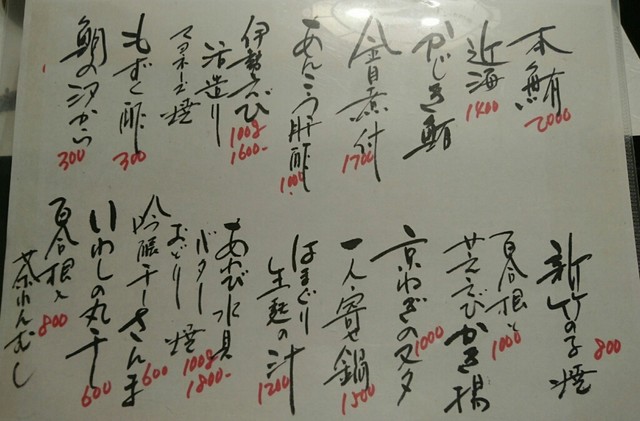 本鮪
2000
近海
1400
かじき鮪
金目煮付
1700
あんこう肝酢
1000
伊勢えび
100g
1600-
活造り
マヨネーズ焼
もずく酢
300
鯛の汐から
300
新竹の子焼
800
百合根と
1000
芝えびかき揚
京ねぎのヌタ
1000
一人寄せ鍋
1500
はまぐり
生麩の汁
1200
あわび水貝
バター焼
おどり
100g
1800-
吟醸干しさんま
600
いわしの丸干
600
百合根と
800
茶わんむし